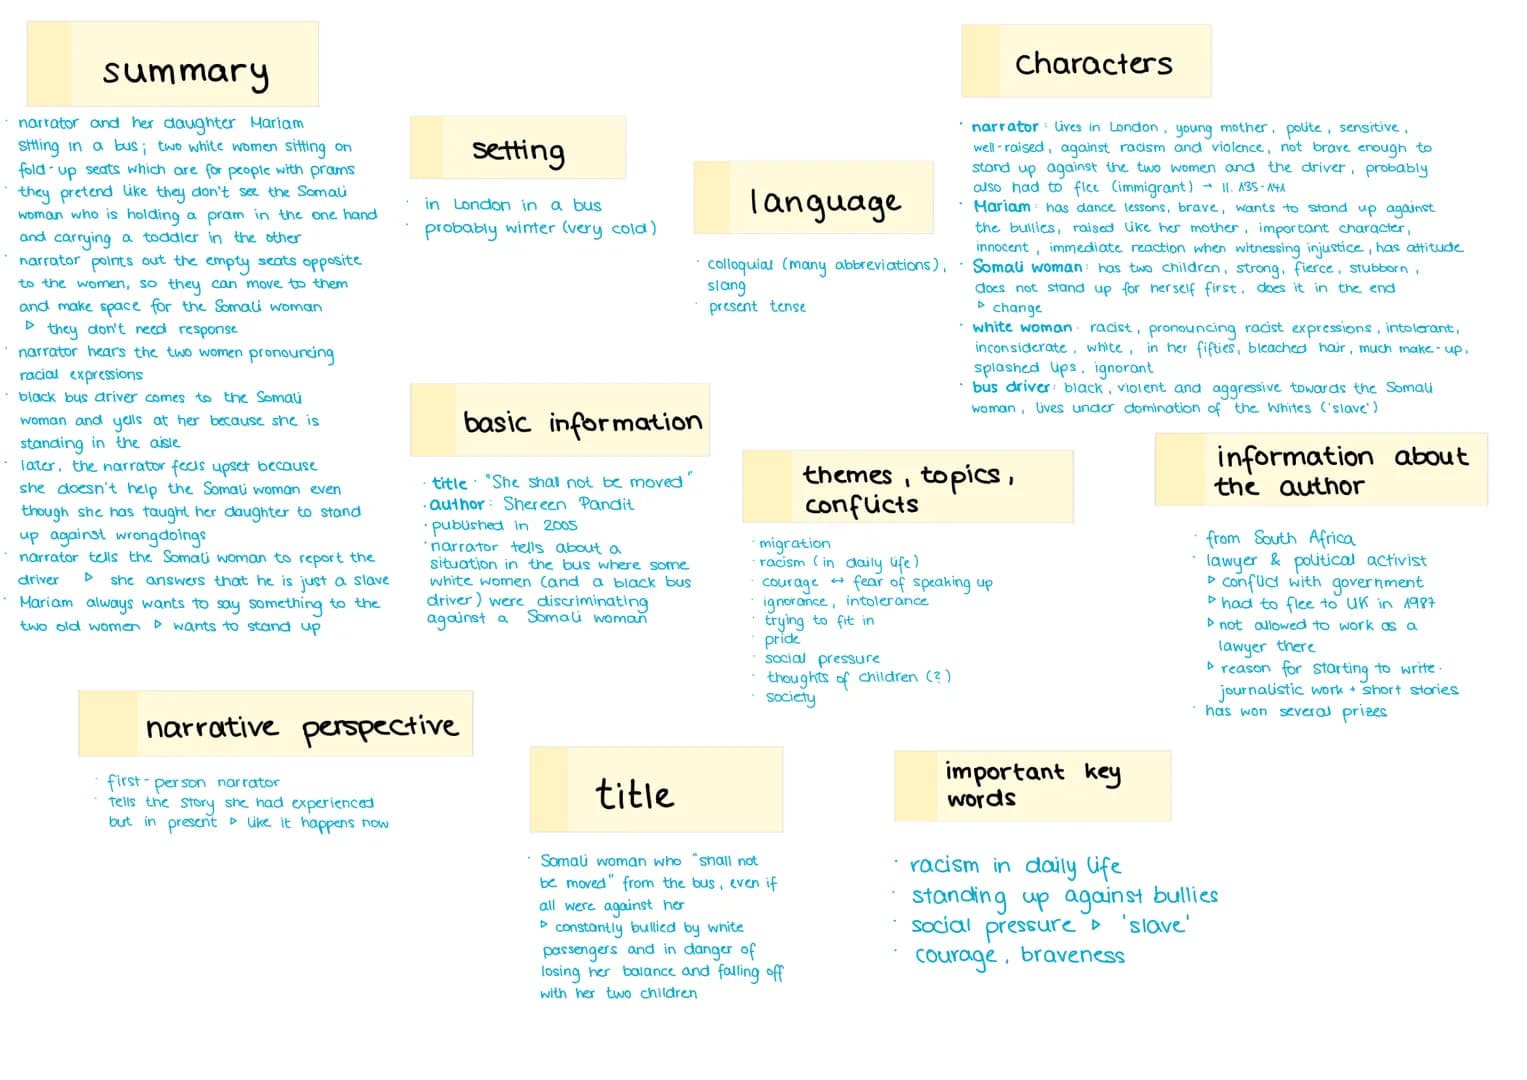 summary
· narrator and her daughter Mariam
sitting in a bus; two white women sitting on
fold-up seats which are for people with prams
· they pretend like they don't see the Somali
woman who is holding a pram in the one hand
and carrying a toddler in the other
· narrator points out the empty seats opposite
to the women, so they can move to them
and make space for the Somali woman
▷ they don't need response
· narrator hears the two women pronouncing
racial expressions
· black bus driver comes to the Somali
woman and yells at her because she is
standing in the aisle
· later, the narrator feels upset because
she doesn't help the Somali woman even
though she has taught her daughter to stand
up against wrongdoings
· narrator tells the Somali woman to report the
driver ▷ she answers that he is just a slave
· Mariam always wants to say something to the
two old women ▷ wants to stand up
setting
· in London in a bus
· probably winter (very cold)
language
· colloquial (many abbreviations),
slang
· present tense
characters
· narrator: lives in London, young mother, polite, sensitive,
well-raised, against racism and violence, not brave enough to
stand up against the two women and the driver, probably
also had to flee (immigrant) → ll. 135-141
· Mariam: has dance lessons, brave, wants to stand up against
the bullies, raised like her mother, important character,
innocent, immediate reaction when witnessing injustice, has attitude
· Somali woman: has two children, strong, fierce, stubborn,
does not stand up for herself first, does it in the end
▷ change
· white woman: racist, pronouncing racist expressions, intolerant,
inconsiderate, white, in her fifties, bleached hair, much make-up,
splashed lips, ignorant
· bus driver: black, violent and aggressive towards the Somali
woman, lives under domination of the Whites ('slave')
basic information
· title: "She shall not be moved"
· author: Shereen Pandit
· published in 2005
· narrator tells about a
situation in the bus where some
white women (and a black bus
driver) were discriminating
against a Somali woman
themes, topics,
conflicts
· migration
· racism (in daily life)
· courage ↔ fear of speaking up
· ignorance, intolerance
· trying to fit in
· pride
· social pressure
· thoughts of children (?)
· society
information about
the author
· from South Africa
· lawyer & political activist
▷ conflict with government
▷ had to flee to UK in 1987
▷ not allowed to work as a
lawyer there
▷ reason for starting to write:
journalistic work + short stories
· has won several prizes
narrative perspective
· first-person narrator
· tells the story she had experienced
but in present ▷ like it happens now
title
· Somali woman who "shall not
be moved" from the bus, even if
all were against her
▷ constantly bullied by white
passengers and in danger of
losing her balance and falling off
with her two children
important key
words
· racism in daily life
· standing up against bullies
· social pressure ▷ 'slave'
· courage, braveness